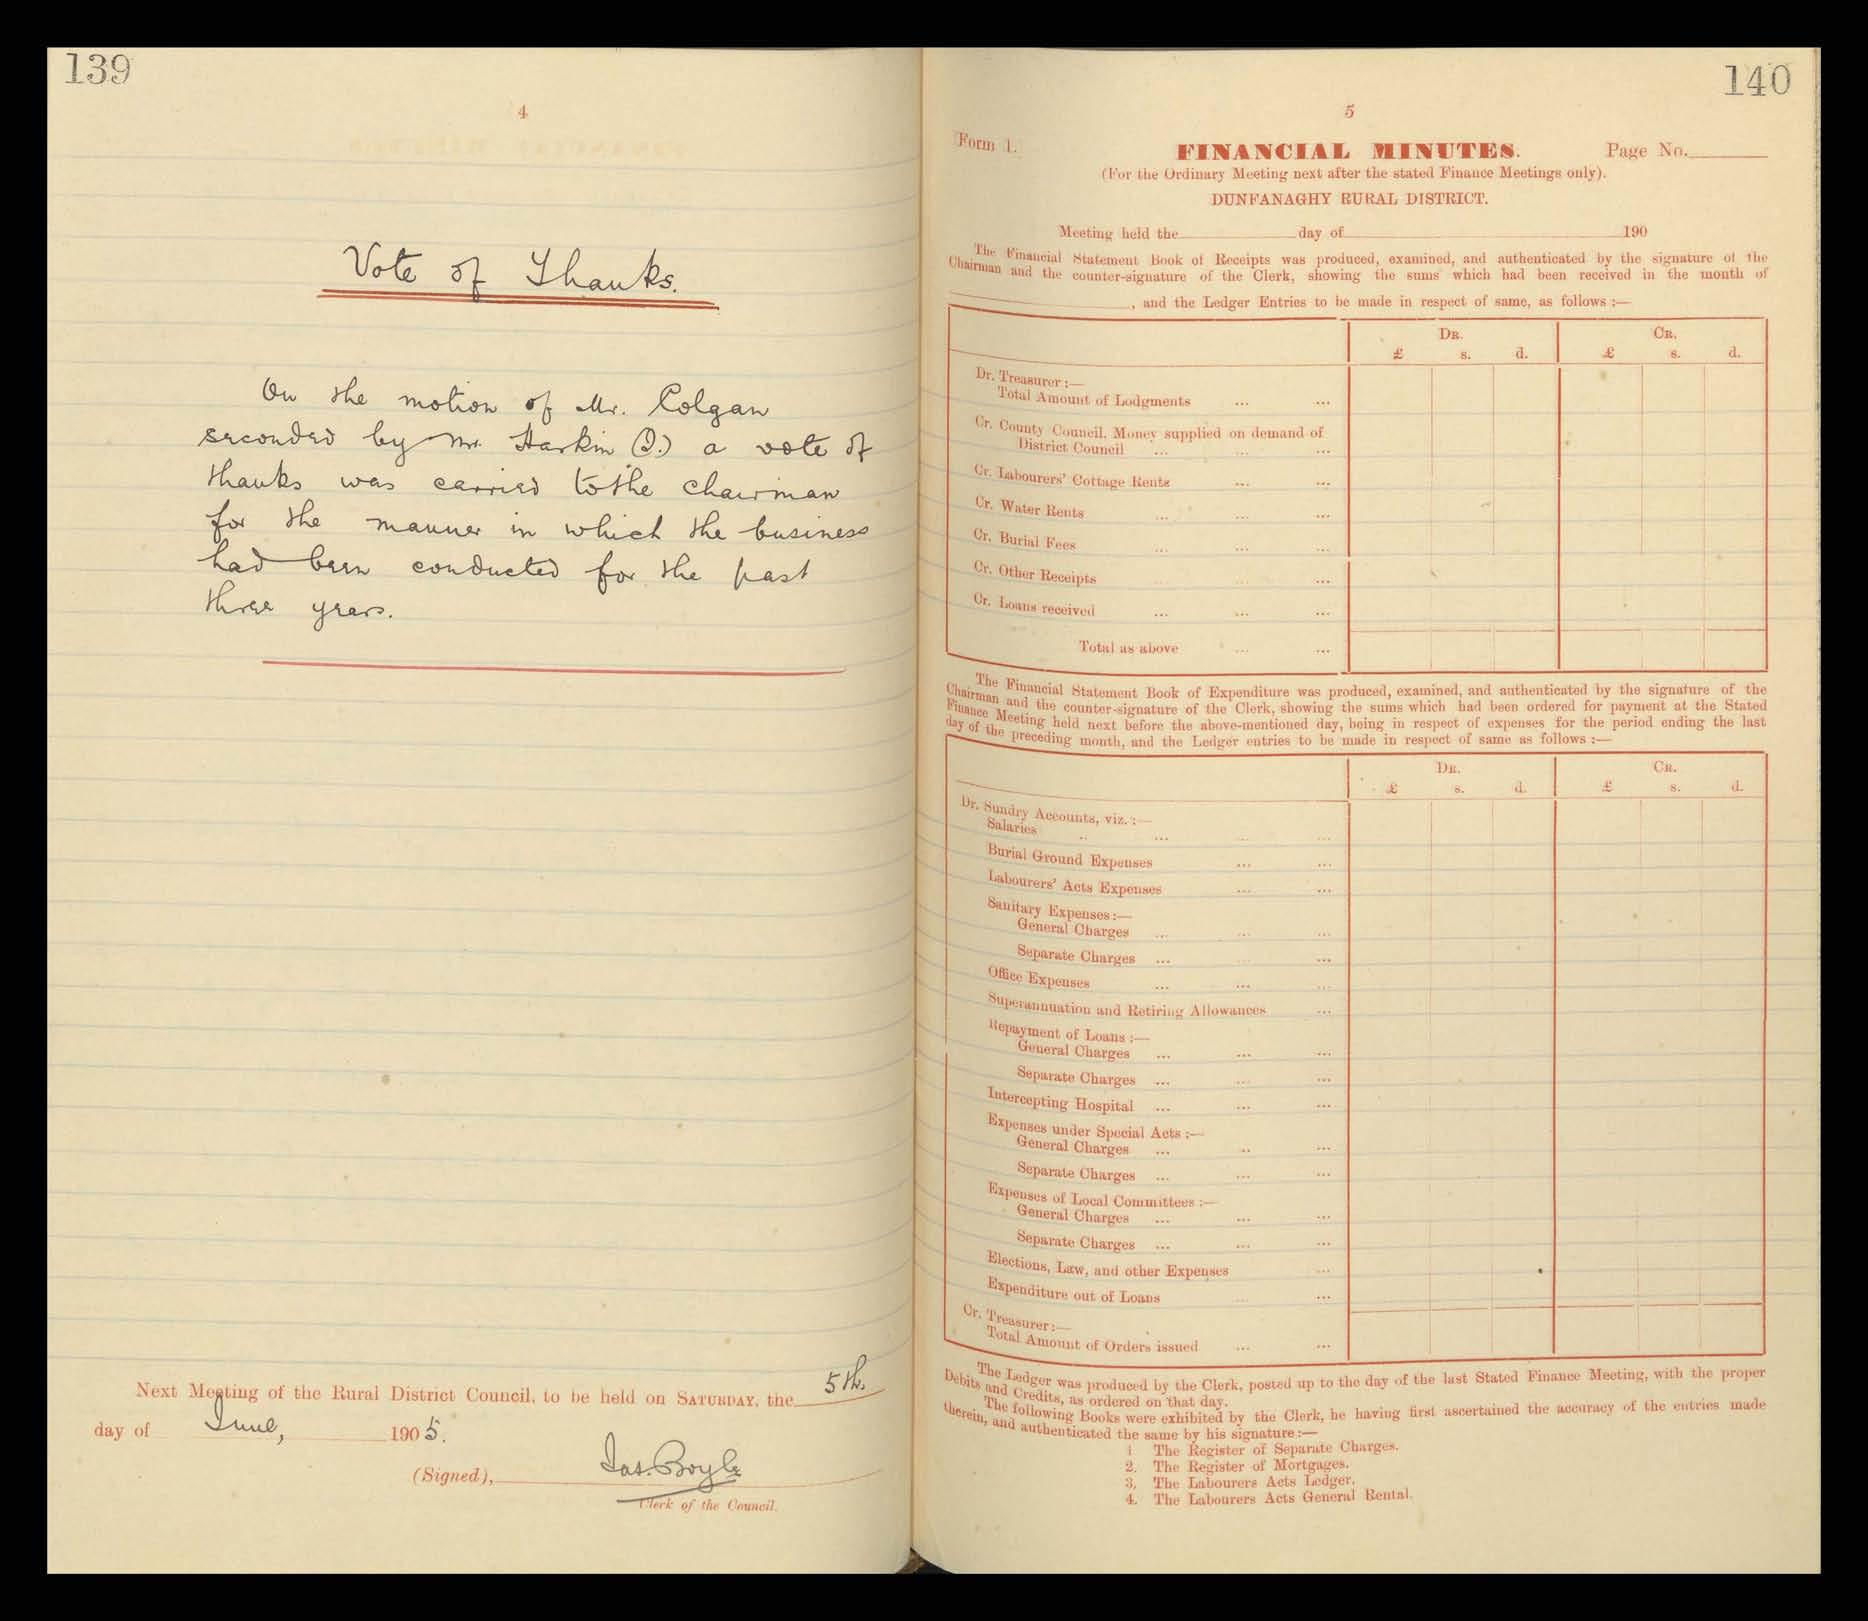 139
4
Vote of Thanks.
On the motion of Mr. Colgan
seconded by Mr. Harkin (D.) a vote of
thanks was carried to the chairman
for the manner in which the business
had been conducted for the past
three years.
Next Meeting of the Rural District Council, to be held on SATURDAY, the 5th.
day of June, 1905.
(Signed), Jas. Boyle
Clerk of the Council.
140
5
Form 1. FINANCIAL MINUTES. Page No.
(For the Ordinary Meeting next after the stated Finance Meetings only).
DUNFANAGHY RURAL DISTRICT.
Meeting held the day of 190
The Financial Statement Book of Receipts was produced, examined, and authenticated by the signature of the
Chairman and the counter-signature of the Clerk, showing the sums which had been received in the month of
, and the Ledger Entries to be made in respect of same, as follows :—
DR. CR.
£ s. d. £ s. d.
Dr. Treasurer :—
Total Amount of Lodgments ... ...
Cr. County Council, Money supplied on demand of
District Council ... ... ...
Cr. Labourers' Cottage Rents ... ...
Cr. Water Rents ... ... ...
Cr. Burial Fees ... ... ...
Cr. Other Receipts ... ... ...
Cr. Loans received ... ... ...
Total as above ... ...
The Financial Statement Book of Expenditure was produced, examined, and authenticated by the signature of the
Chairman and the counter-signature of the Clerk, showing the sums which had been ordered for payment at the Stated
Finance Meeting held next before the above-mentioned day, being in respect of expenses for the period ending the last
day of the preceding month, and the Ledger entries to be made in respect of same as follows :—
DR. CR.
£ s. d. £ s. d.
Dr. Sundry Accounts, viz. :—
Salaries ... ... ... ...
Burial Ground Expenses ... ...
Labourers' Acts Expenses ... ...
Sanitary Expenses :—
General Charges ... ... ...
Separate Charges ... ... ...
Office Expenses ... ... ...
Superannuation and Retiring Allowances ...
Repayment of Loans :—
General Charges ... ... ...
Separate Charges ... ... ...
Intercepting Hospital ... ... ...
Expenses under Special Acts :—
General Charges ... ... ...
Separate Charges ... ... ...
Expenses of Local Committees :—
General Charges ... ... ...
Separate Charges ... ... ...
Elections, Law, and other Expenses ...
Expenditure out of Loans ... ...
Cr. Treasurer :—
Total Amount of Orders issued ... ...
The Ledger was produced by the Clerk, posted up to the day of the last Stated Finance Meeting, with the proper
Debits and Credits, as ordered on that day.
The following Books were exhibited by the Clerk, he having first ascertained the accuracy of the entries made
therein, and authenticated the same by his signature :—
1 The Register of Separate Charges.
2. The Register of Mortgages.
3. The Labourers Acts Ledger.
4. The Labourers Acts General Rental.